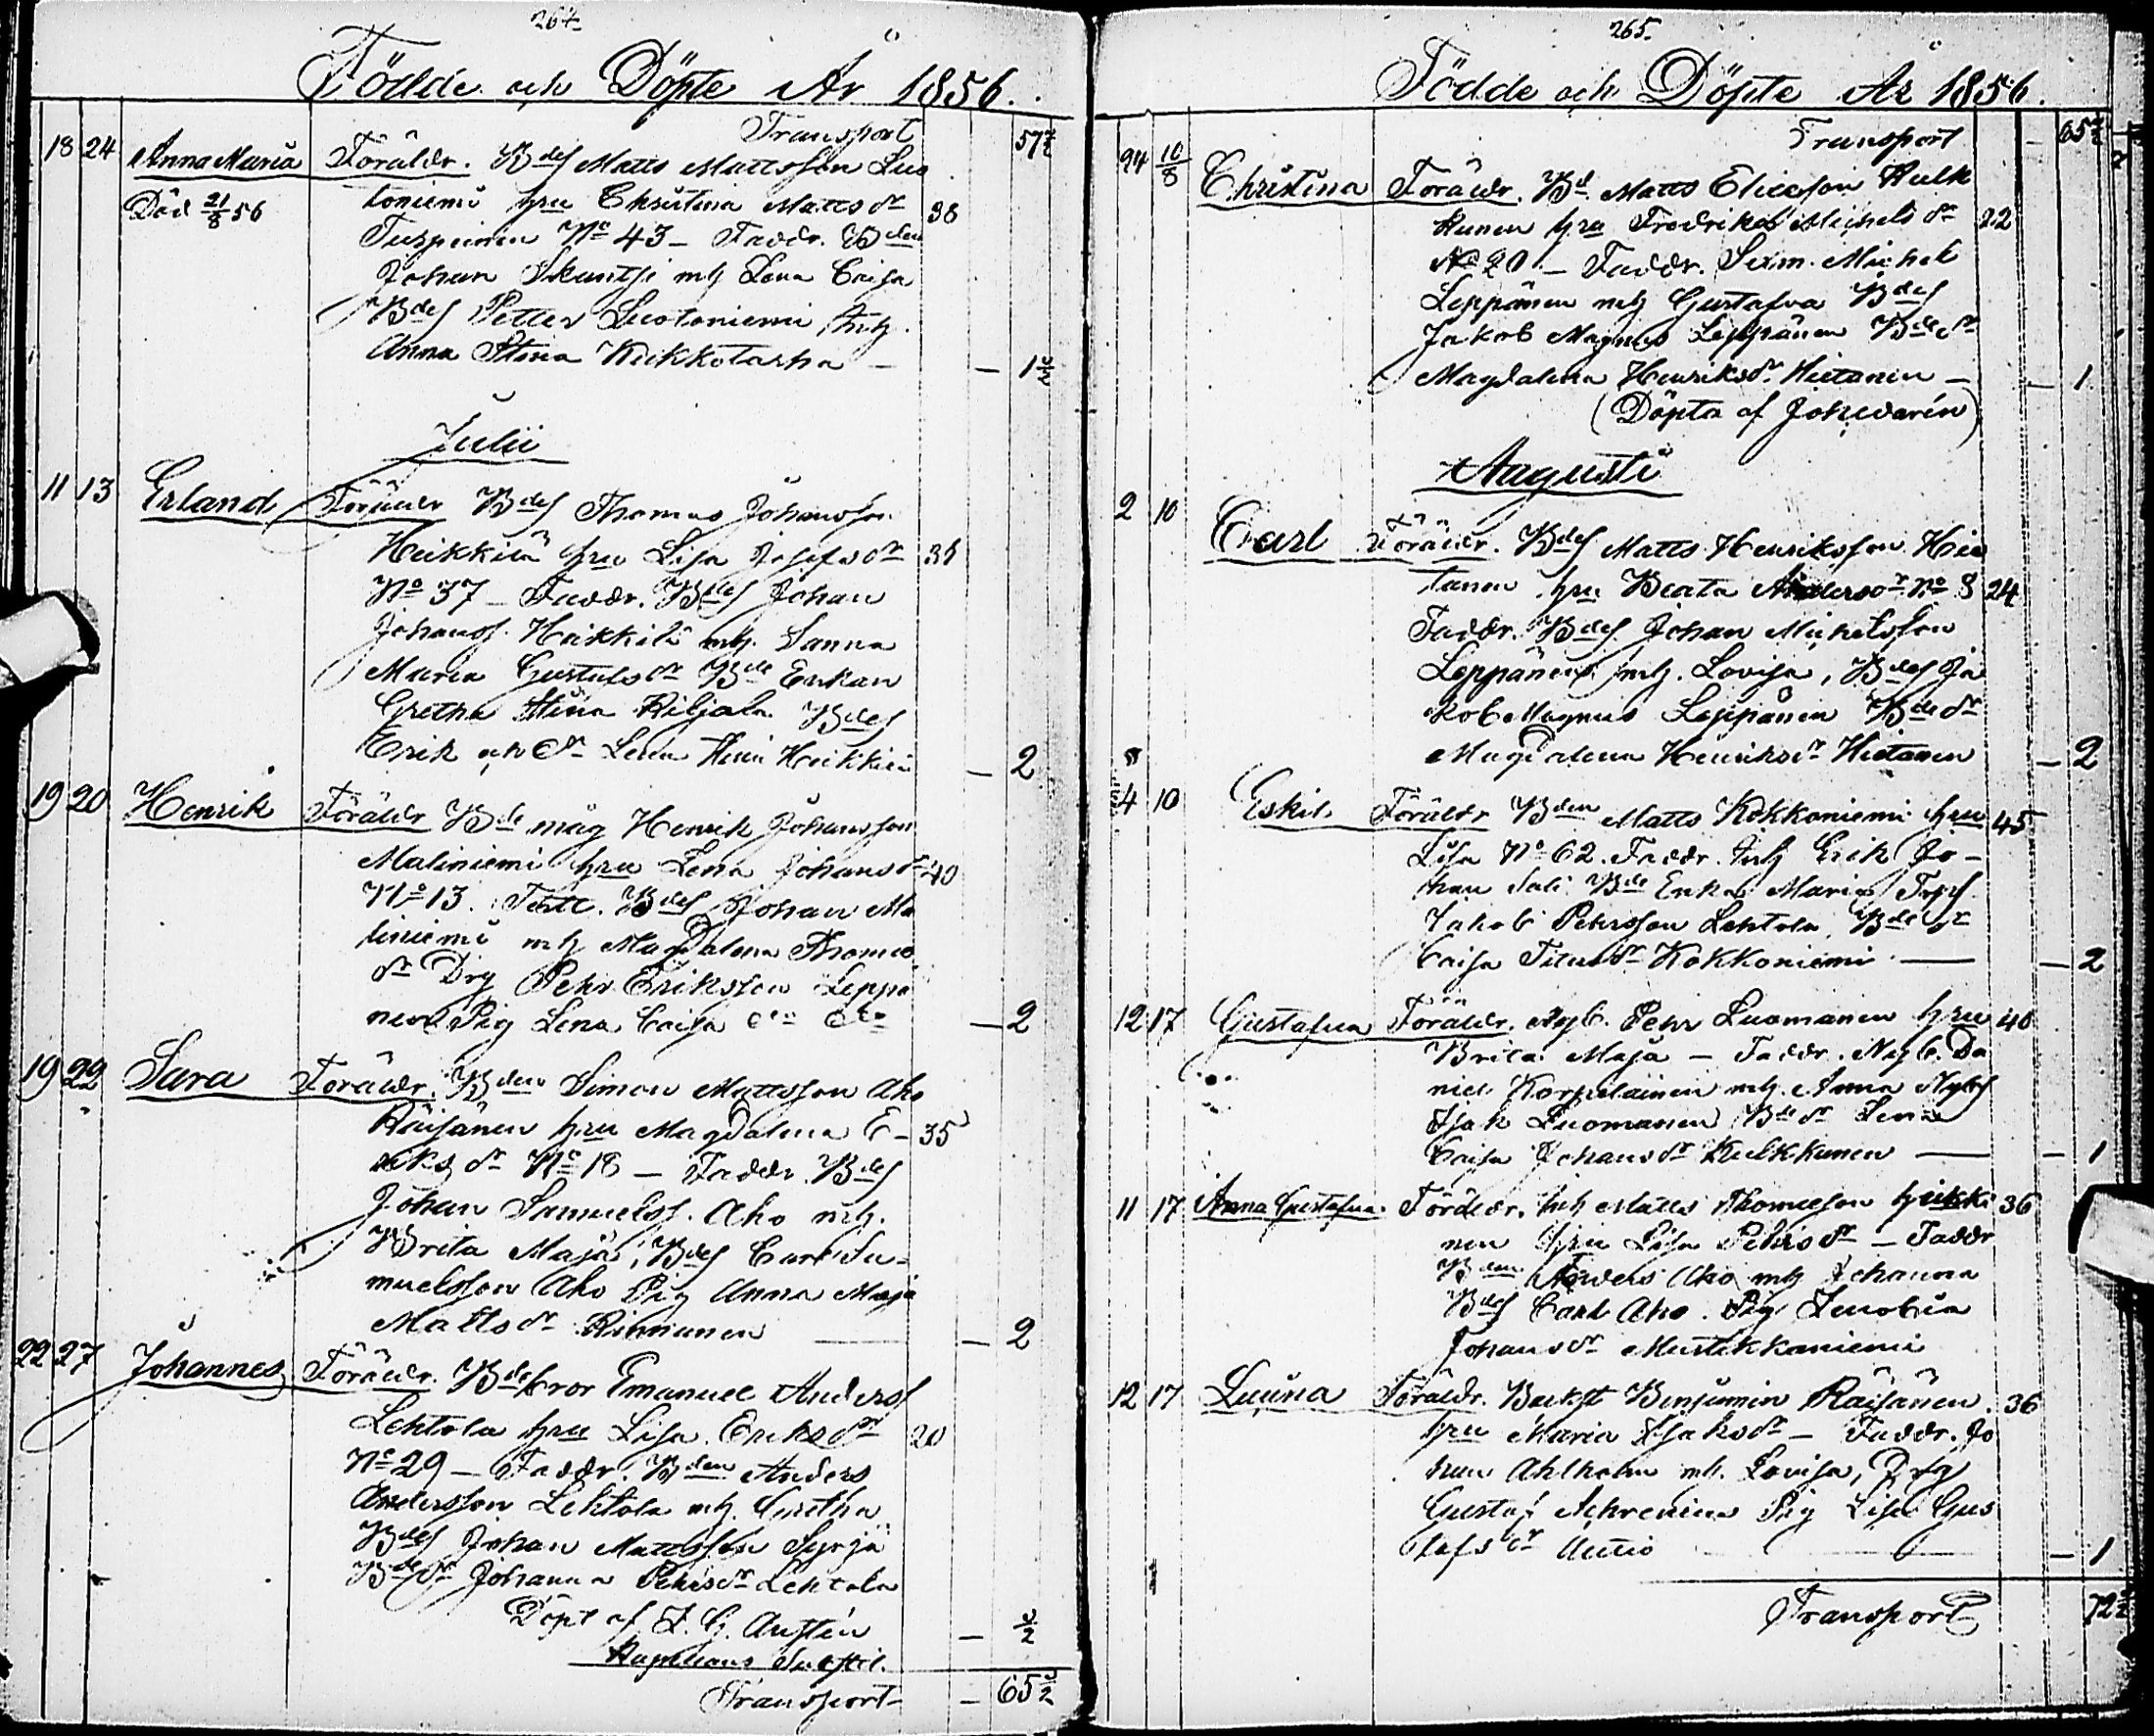 264.
Födde och Döpte År 1856.
Transport 57½
18 24 Anna Maria Föräldr. Bdes Matts Mattsson Luo
Död 21/8 56 toniemi hru Christina Mattsdr 38
No 43 – Faddr. Bden
Johan Skantsi mh Lena Caisa
Bdes Petter Luotoniemi, Inh
Anna Stina Kukkotarha – 1½
Julii
11 13 Erland Föräldr Bdes Thomas Johansson
Heikkilä hru Lisa Josefsdr 31
No 37 – Faddr. Bdes Johan
Johanss. Heikkilä mh. Sanna
Maria Gustafsdr Bde Enkan
Gretha Stina Kiljala Bdes
Erik och dr Lena Heikkilä – 2
19 20 Henrik Föräldr Bde måg Henrik Johansson
Maliniemi hru Lena Johansdr 40
No 13. Test. Bdes Johan Ma
liniemi mh Magdalena Thomas
dr Drg Pehr Eriksson Leppä
nen Pig Lena Caisa – 2
19 22 Sara Föräldr. Bden Simon Mattsson Aho
Räisänen hru Magdalena E– 35
riksdr No 18 – Faddr. Bdes
Johan Samuelss. Aho mh.
Brita Maja, Bdes Carl Sa–
muelsson Aho Pig Anna Maja
Mattsdr – 2
22 27 Johannes Föräldr. Bdebror Emanuel Anderss
Lehtola hru Lisa Eriksdr 20
No 29 – Faddr. Bden Anders
Andersson Lehtola mh. Gretha
Bdes Johan Mattsson Syrjä
Bdedr Johanna Pehrsdr Lehtola
Döpt af F. G. ½
Kapellans
Transport – 65½
265.
Födde och Döpte År 1856.
Transport – 65½
24 10/8 Christina Föräldr. Bd. Matts Ericsson Kulk
kunen hru Fredrika Michelsdr 22
No 20 – Faddr. Sexm. Michel
Leppänen mh Gustafva Bdes
Jakob Magnus Leppänen Bdedr
Magdalena Henriksdr Hietanen – 1
(Döpta af
Augusti
2 10 Carl Föräldr. Bdes Matts Henriksson Hie
tanen hru Beata Andersdr No 8 24
Faddr. Bdes Johan Michelsson
Leppänen mh. Lovisa, Bdes Ja
kob Magnus Leppänen Bdedr
Magdalena Henriksdr Hietanen – 2
4 10 Eskil Föräldr Bden Matts Kokkoniemi hru 45
Lisa No 62. Faddr. Inh Erik Jo–
han Bde Enka Maria
Jakob Pehrsson Lehtola, Bdedr
Caisa Kokkoniemi – 2
12 17 Gustafva Föräldr. Nyb. Pehr Luomanen hru 40
Brita Maja – Faddr. Nyb. Da
niel Korpelainen mh. Anna Nybs
Isak Luomanen Bdedr Lena
Caisa Johansdr Kulkkunen – 1
11 17 Anna Gustafva Föräldr. Inh Matts Thomasson Heikki 36
nen hru Lisa Pehrsdr – Faddr
Bden Anders Aho mh Johanna
Bdes Carl Aho. Pig
Johansdr Mustikkaniemi
12 17 Föräldr. Backst Benjamin Räisänen 36
hru Maria Isaksdr – Faddr. Jo
han Ahlholm mh. Lovisa, Drg
Gustaf Pig Lisa Gus
tafsdr Autio – 1
Transport 72½